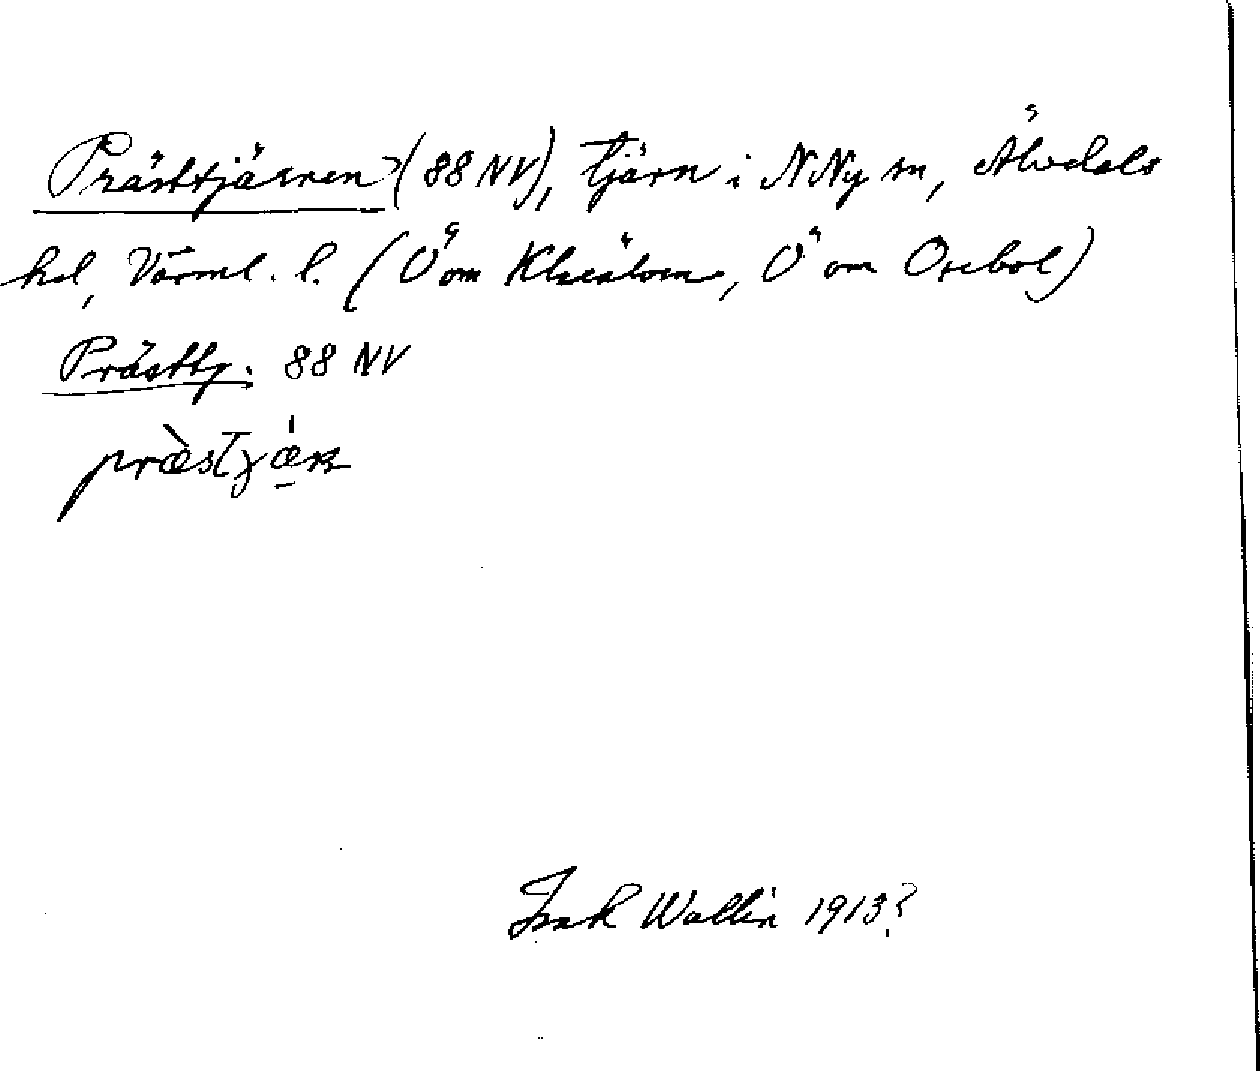 Prästtjärnen (88 NV), tjärn i N Ny sn, Älvdals
hd, Värml. l. (Ö om Klarälven, Ö om Osebol)
Prästtj. 88 NV
Isak Wallin 1913?